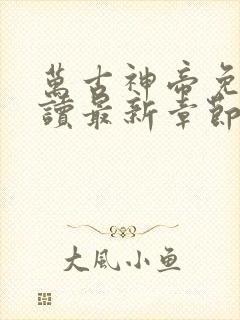 萬古神帝免
讀最新章節
大風小鱼